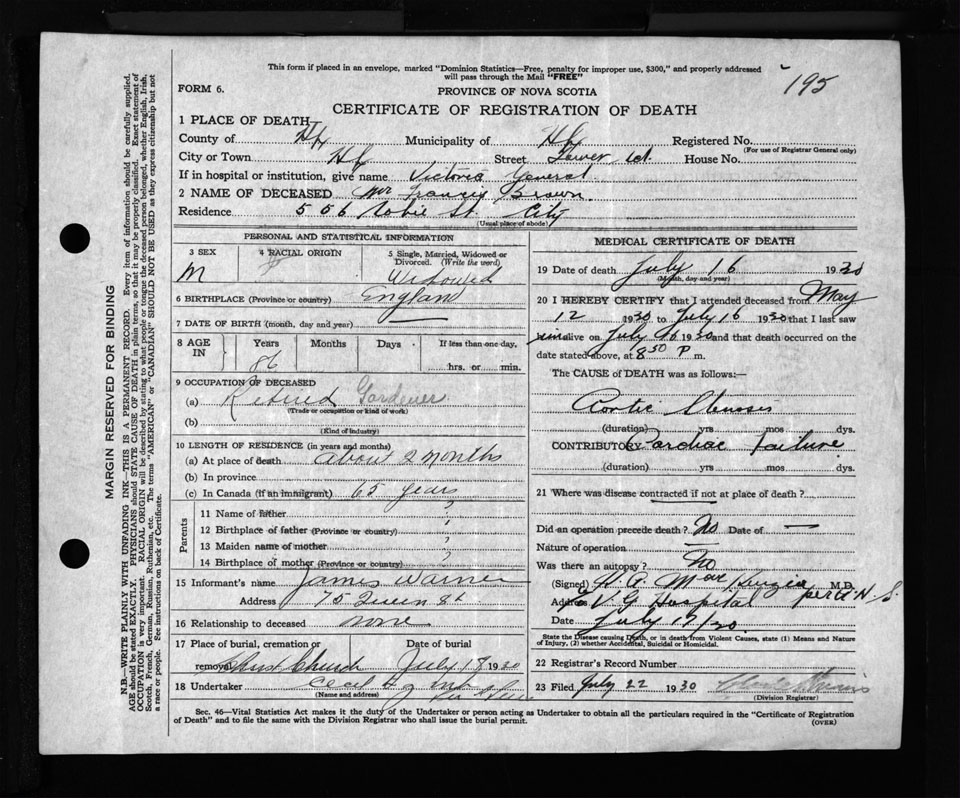 This form if placed in an envelope, marked "Dominion Statistics—Free, penalty for improper use, $300," and properly addressed
will pass through the Mail "FREE"
195
FORM 6.
PROVINCE OF NOVA SCOTIA
CERTIFICATE OF REGISTRATION OF DEATH
1 PLACE OF DEATH
County of Hfx Municipality of Hfx Registered No.
(For use of Registrar General only)
City or Town Hfx Street Tower Rd. House No.
If in hospital or institution, give name Victoria General
2 NAME OF DECEASED Mr Francis Brown.
Residence 506 Robie St. City
(Usual place of abode)
PERSONAL AND STATISTICAL INFORMATION
3 SEX 4 RACIAL ORIGIN 5 Single, Married, Widowed or
Divorced. (Write the word)
M Widowed
6 BIRTHPLACE (Province or country) England
7 DATE OF BIRTH (month, day and year)
8 AGE IN Years Months Days If less than one day,
86 hrs. or min.
9 OCCUPATION OF DECEASED
(a) Retired Gardener
(Trade or occupation or kind of work)
(b)
(Kind of industry)
10 LENGTH OF RESIDENCE (in years and months)
(a) At place of death about 2 months
(b) In province
(c) In Canada (if an immigrant) 65 years
Parents
11 Name of father ?
12 Birthplace of father (Province or country) ?
13 Maiden name of mother ?
14 Birthplace of mother (Province or country) ?
15 Informant's name James Warner
Address 75 Queen St
16 Relationship to deceased none
17 Place of burial, cremation or Date of burial
removal Christ Church July 18 1930
18 Undertaker Cecil
(Name and address)
MEDICAL CERTIFICATE OF DEATH
19 Date of death July 16 1930
(Month, day and year)
20 I HEREBY CERTIFY that I attended deceased from May
12 1930 to July 16 1930 that I last saw
him alive on July 16 1930 and that death occurred on the
date stated above, at 8 50 P m.
The CAUSE of DEATH was as follows:—
Aortic Stenosis
(duration) yrs mos dys.
CONTRIBUTORY Cardiac failure
(duration) yrs mos dys.
21 Where was disease contracted if not at place of death?
Did an operation precede death? No Date of —
Nature of operation —
Was there an autopsy? No
(Signed) H. A. MacKenzie M.D.
per
Address V G Hospital
Date July 17/30.
State the Disease causing Death, or in death from Violent Causes, state (1) Means and Nature
of Injury, (2) whether Accidental, Suicidal or Homicidal.
22 Registrar's Record Number
23 Filed July 22 1930
(Division Registrar)
Sec. 46—Vital Statistics Act makes it the duty of the Undertaker or person acting as Undertaker to obtain all the particulars required in the "Certificate of Registration
of Death" and to file the same with the Division Registrar who shall issue the burial permit.
(OVER)
MARGIN RESERVED FOR BINDING
N.B.—WRITE PLAINLY WITH UNFADING INK—THIS IS A PERMANENT RECORD. Every item of information should be carefully supplied.
AGE should be stated EXACTLY. PHYSICIANS should STATE CAUSE OF DEATH in plain terms, so that it may be properly classified. Exact statement of
OCCUPATION is very important. RACIAL ORIGIN will be described by stating to what people or tongue the deceased person belonged, whether English, Irish,
Scotch, French, German, Russian, Ruthenian, etc. The terms "AMERICAN" or "CANADIAN" SHOULD NOT BE USED as they express citizenship but not
a race or people. See instructions on back of Certificate.